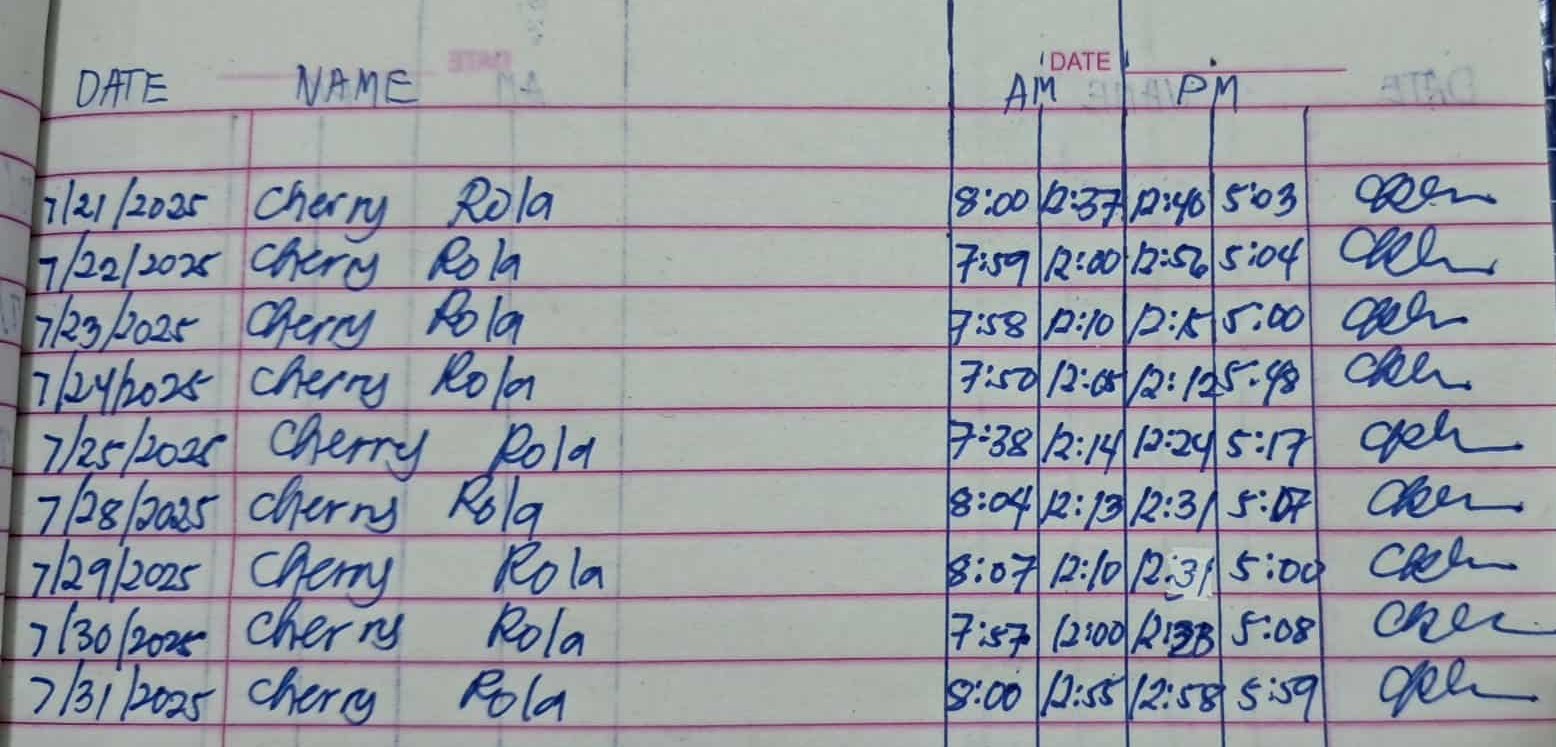 DATE
DATE NAME AM PM
7/21/2025 Cherry Rola 8:00 12:37 12:40 5:03
7/22/2025 Cherry Rola 7:59 12:00 12:56 5:04
7/23/2025 Cherry Rola 7:58 12:10 12:15 5:00
7/24/2025 Cherry Rola 7:50 12:05 12:12 5:48
7/25/2025 Cherry Rola 7:38 12:14 12:24 5:17
7/28/2025 Cherry Rola 8:04 12:13 12:31 5:07
7/29/2025 Cherry Rola 8:07 12:10 12:31 5:00
7/30/2025 Cherry Rola 7:57 12:00 5:08
7/31/2025 Cherry Rola 8:00 12:55 12:58 5:59